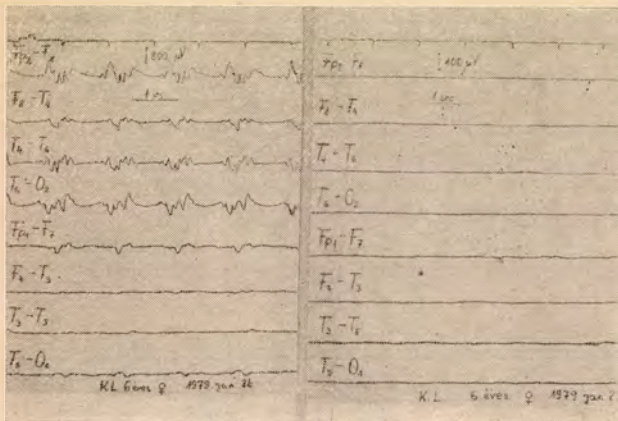 Fp2-F8
100 µV
F8-T4
1 sec
T4-T6
T6-O2
Fp1-F7
F7-T3
T3-T5
T5-O1
K.L 6 éves ♀ 1979 jan 26
Fp2 F8
100 µV
F8-T4
1 sec
T4-T6
T6-O2
Fp1-F7
F7-T3
T3-T5
T5-O1
K.L. 6 éves ♀ 1979 jan